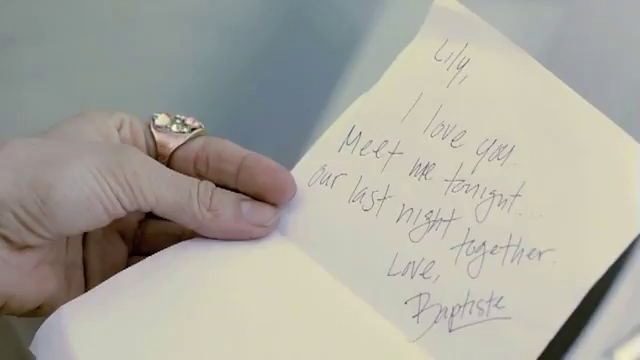 Lily,
I love you.
Meet me tonight...
our last night together.
Love,
Baptiste